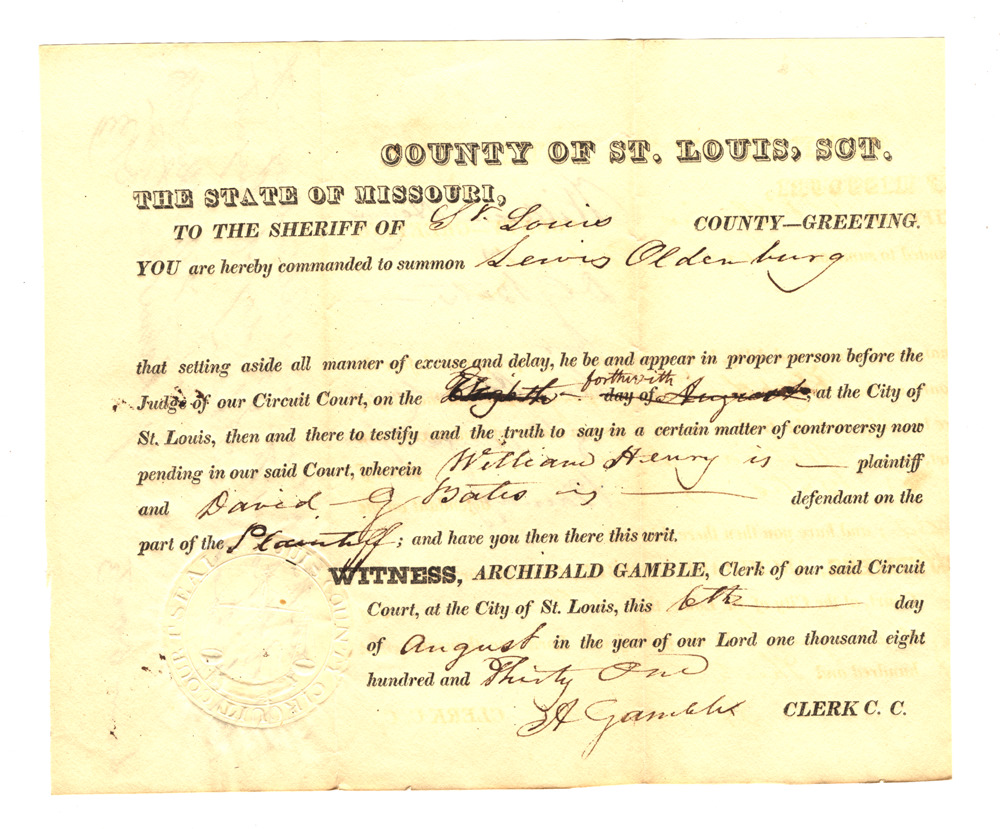 COUNTY OF ST. LOUIS, SCT.
THE STATE OF MISSOURI,
TO THE SHERIFF OF St. Louis COUNTY—GREETING.
YOU are hereby commanded to summon Lewis Oldenburg
that setting aside all manner of excuse and delay, he be and appear in proper person before the
forthwith
Judge of our Circuit Court, on the Eighth day of August at the City of
St. Louis, then and there to testify and the truth to say in a certain matter of controversy now
pending in our said Court, wherein William Henry is — plaintiff
and David G Bates is — defendant on the
part of the Plaintiff; and have you then there this writ.
WITNESS, ARCHIBALD GAMBLE, Clerk of our said Circuit
Court, at the City of St. Louis, this 6th day
of August in the year of our Lord one thousand eight
hundred and Thirty One
A Gamble CLERK C. C.